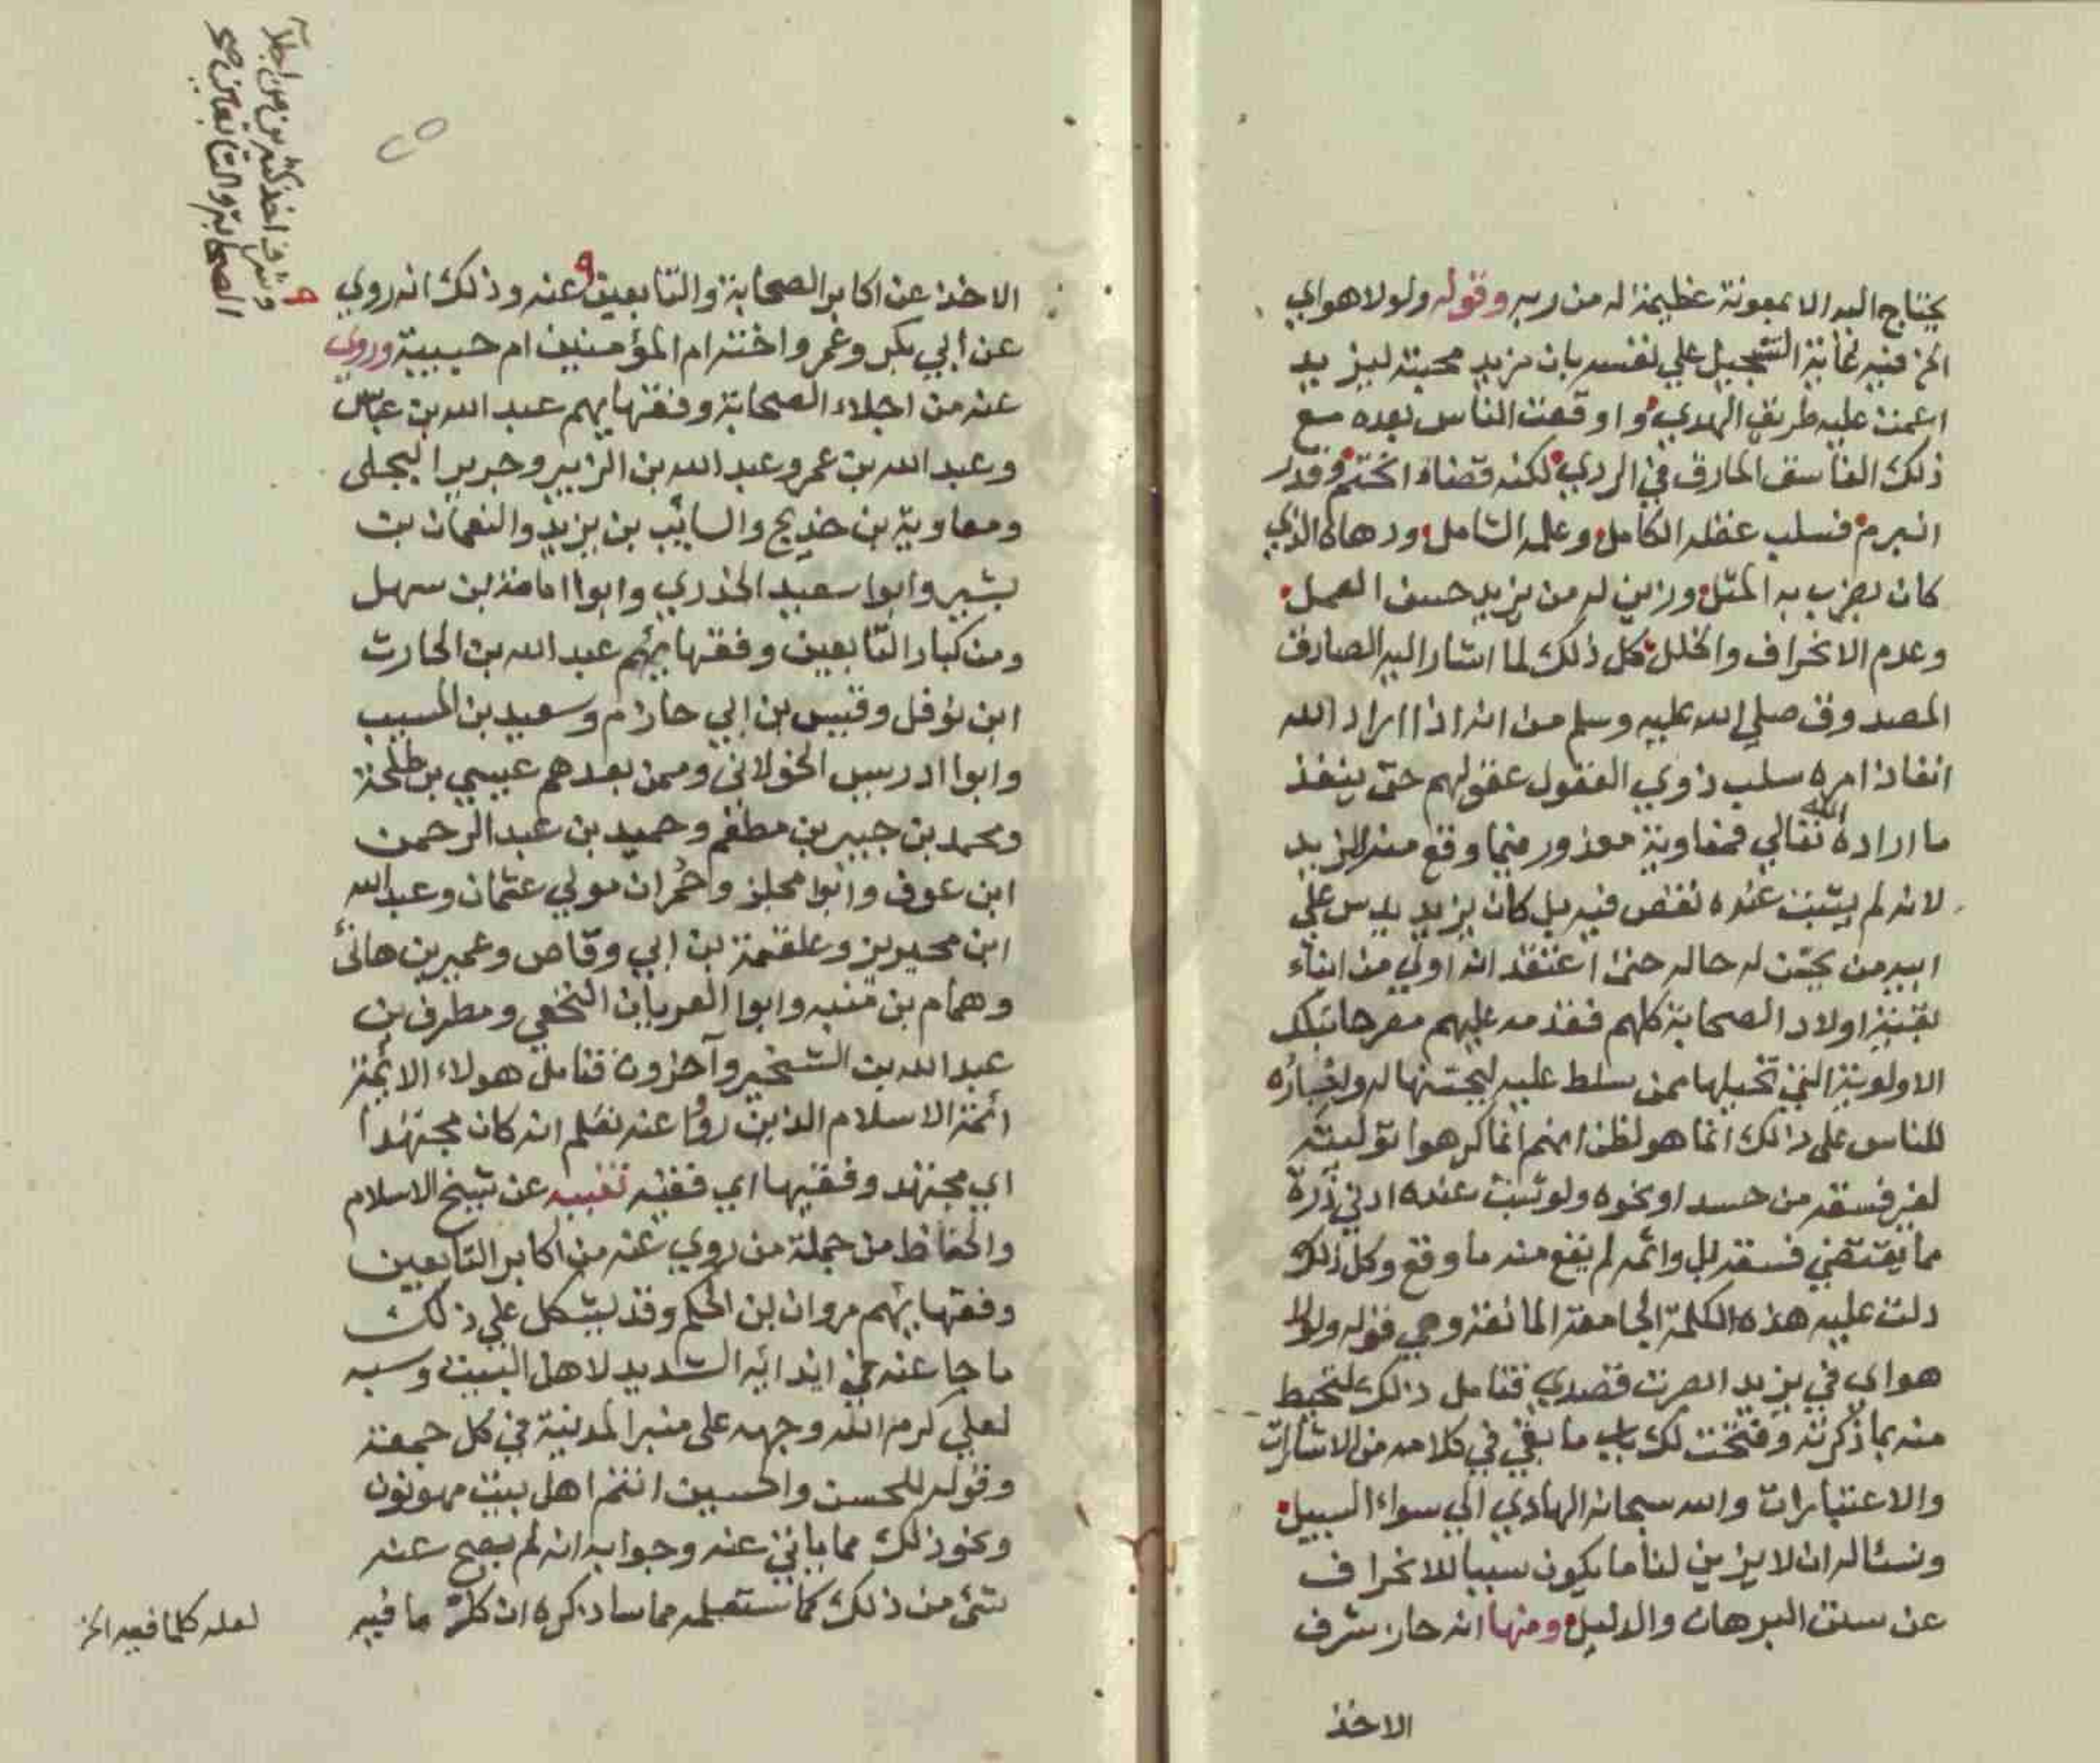 يحتاج اليه الا بمعونة عظيمة له من ربه وقوله ولولا هواي
الخ فيه غاية التسجيل علي نفسه بان مزيد محبته ليزيد
اعمت عليه طريق الهدي واوقعت الناس بعده مع
ذلك الفاسق المارق في الردي لكنه قضاء انحتم وقدر
انبرم فسلب عقله الكامل وعلمه الشامل ودهاه الذي
كان يضرب به المثل وزين له من يزيد حسن العمل
وعدم الانحراف والخلل كل ذلك لما اشار اليه الصادق
المصدوق صلي الله عليه وسلم من انه اذا اراد الله
انفاذ امره سلب ذوي العقول عقولهم حتى ينفذ
ما اراده الله تعالي فمعاوية معذور فيما وقع منه ليزيد
لانه لم يثبت عنده نقص فيه بل كان يزيد يدس علي
ابيه من يحسن له حاله حتى اعتقد انه اولي من ابناء
بقية اولاد الصحابة كلهم فقدمه عليهم مصرحا بتلك
الاولوية التي تخيلها ممن سلط عليه ليحسنها له واختياره
للناس على ذالك انما هو لظن انهم انما كرهوا توليته
لغير فسقه من حسد او نحوه ولو ثبت عنده ادني ذرة
مما يقتضي فسقه بل واثمه لم يقع منه ما وقع وكل ذلك
دلت عليه هذه الكلمة الجامعة المانعة وهي قوله ولولا
هواي في يزيد ابصرت قصدي فتامل ذلك لتحيط
منه بما ذكرته وفتحت لك باب ما بقي في كلامه من الاشارات
والاعتبارات والله سبحانه الهادي الي سواء السبيل
ونسئاله ان لا يزين لنا ما يكون سببا للانحراف
عن سنن البرهان والدليل ومنها انه حاز شرف
الاخذ
الاخذ عن اكابر الصحابة والتابعين عنه وذلك انه روي
عن ابي بكر وعمر واخته ام المؤمنين ام حبيبة وروي
عنه من اجلاء الصحابة وفقهايهم عبد الله بن عباس
وعبد الله بن عمر وعبد الله بن الزبير وجرير البجلى
ومعاوية بن خديج والسائب بن يزيد والنعمان بن
بشير وابوا سعيد الخدري وابوا امامة ابن سهل
ومن كبار التابعين وفقهائهم عبد الله بن الحارث
ابن نوفل وقيس بن ابي حازم وسعيد بن المسيب
وابوا ادريس الخولانى وممن بعدهم عيسي بن طلحة
ومحمد بن جبير بن مطعم وحميد بن عبد الرحمن
ابن عوف وابوا مجلز وحمران مولي عثمان وعبد الله
ابن محيريز وعلقمة بن ابي وقاص وعمير بن هانئ
وهمام بن منبه وابوا العريان النخعي ومطرف بن
عبد الله بن الشخير وآخرون فتامل هولاء الائمة
ائمة الاسلام الذين رووا عنه تعلم انه كان مجتهدا
اي مجتهد وفقيها اي فقيه تنبيه عن شيخ الاسلام
والحفاظ من جملة من روي عنه من اكابر التابعين
وفقهايئهم مروان بن الحكم وقد يشكل علي ذلك
ما جا عنه في ايذائه الشديد لاهل البيت وسبه
لعلي كرم الله وجهه على منبر المدينة في كل جمعة
وقوله للحسن والحسين انتم اهل بيت
ونحو ذلك مما ياتي عنه وجوابه انه لم يصح عنه
شئ من ذلك كما ستعلمه مما ساذكره ان كل ما فيه
وشرف اخذ كثيرين من اجلآ
الصحابة والتابعين صح
لعله كلما فيه الخ